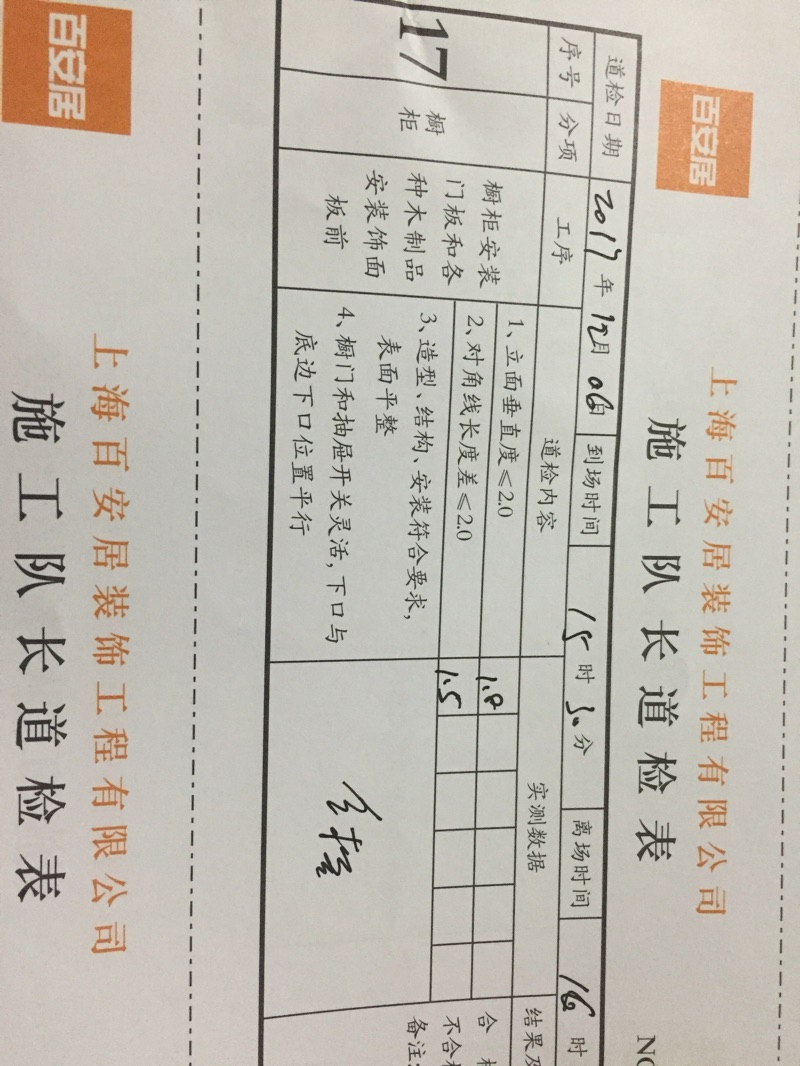 百安居
上海百安居装饰工程有限公司
施工队长道检表
NO
道检日期 2017年12月06日 到场时间 15时30分 离场时间 16时
序号 分项 工序 道检内容 实测数据 结果及
17 橱柜
橱柜安装
门板和各
种木制品
安装饰面
板前
1、立面垂直度≤2.0 1.8
2、对角线长度差≤2.0 1.5
3、造型、结构、安装符合要求,
表面平整
4、橱门和抽屉开关灵活,下口与
底边下口位置平行
合格
合
不合格
备注:
百安居
上海百安居装饰工程有限公司
施工队长道检表